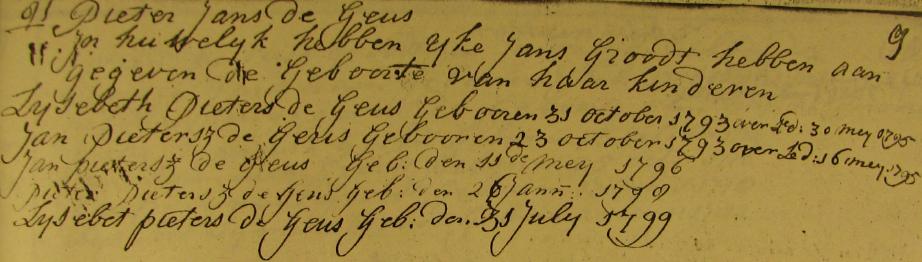 91 Pieter Jans de Geus 9
Jor huwelyk hebben Yke Jans Groodt hebben aan
gegeven de Geboorte van haar kinderen
Lysebeth Pieters de Geus Gebooren 31 october 1793 over Led: 30 mey 1795
Jan Pietersz de Geus Gebooren 23 october 1793 over Led: 16 mey 1795
Jan pietersz de Geus Geb: den 11 de mey 1796
Pieter Pietersz de Geus Geb: den 26 Jann: 1798
Lysebet pieters de Geus Geb: den 31 July 1799